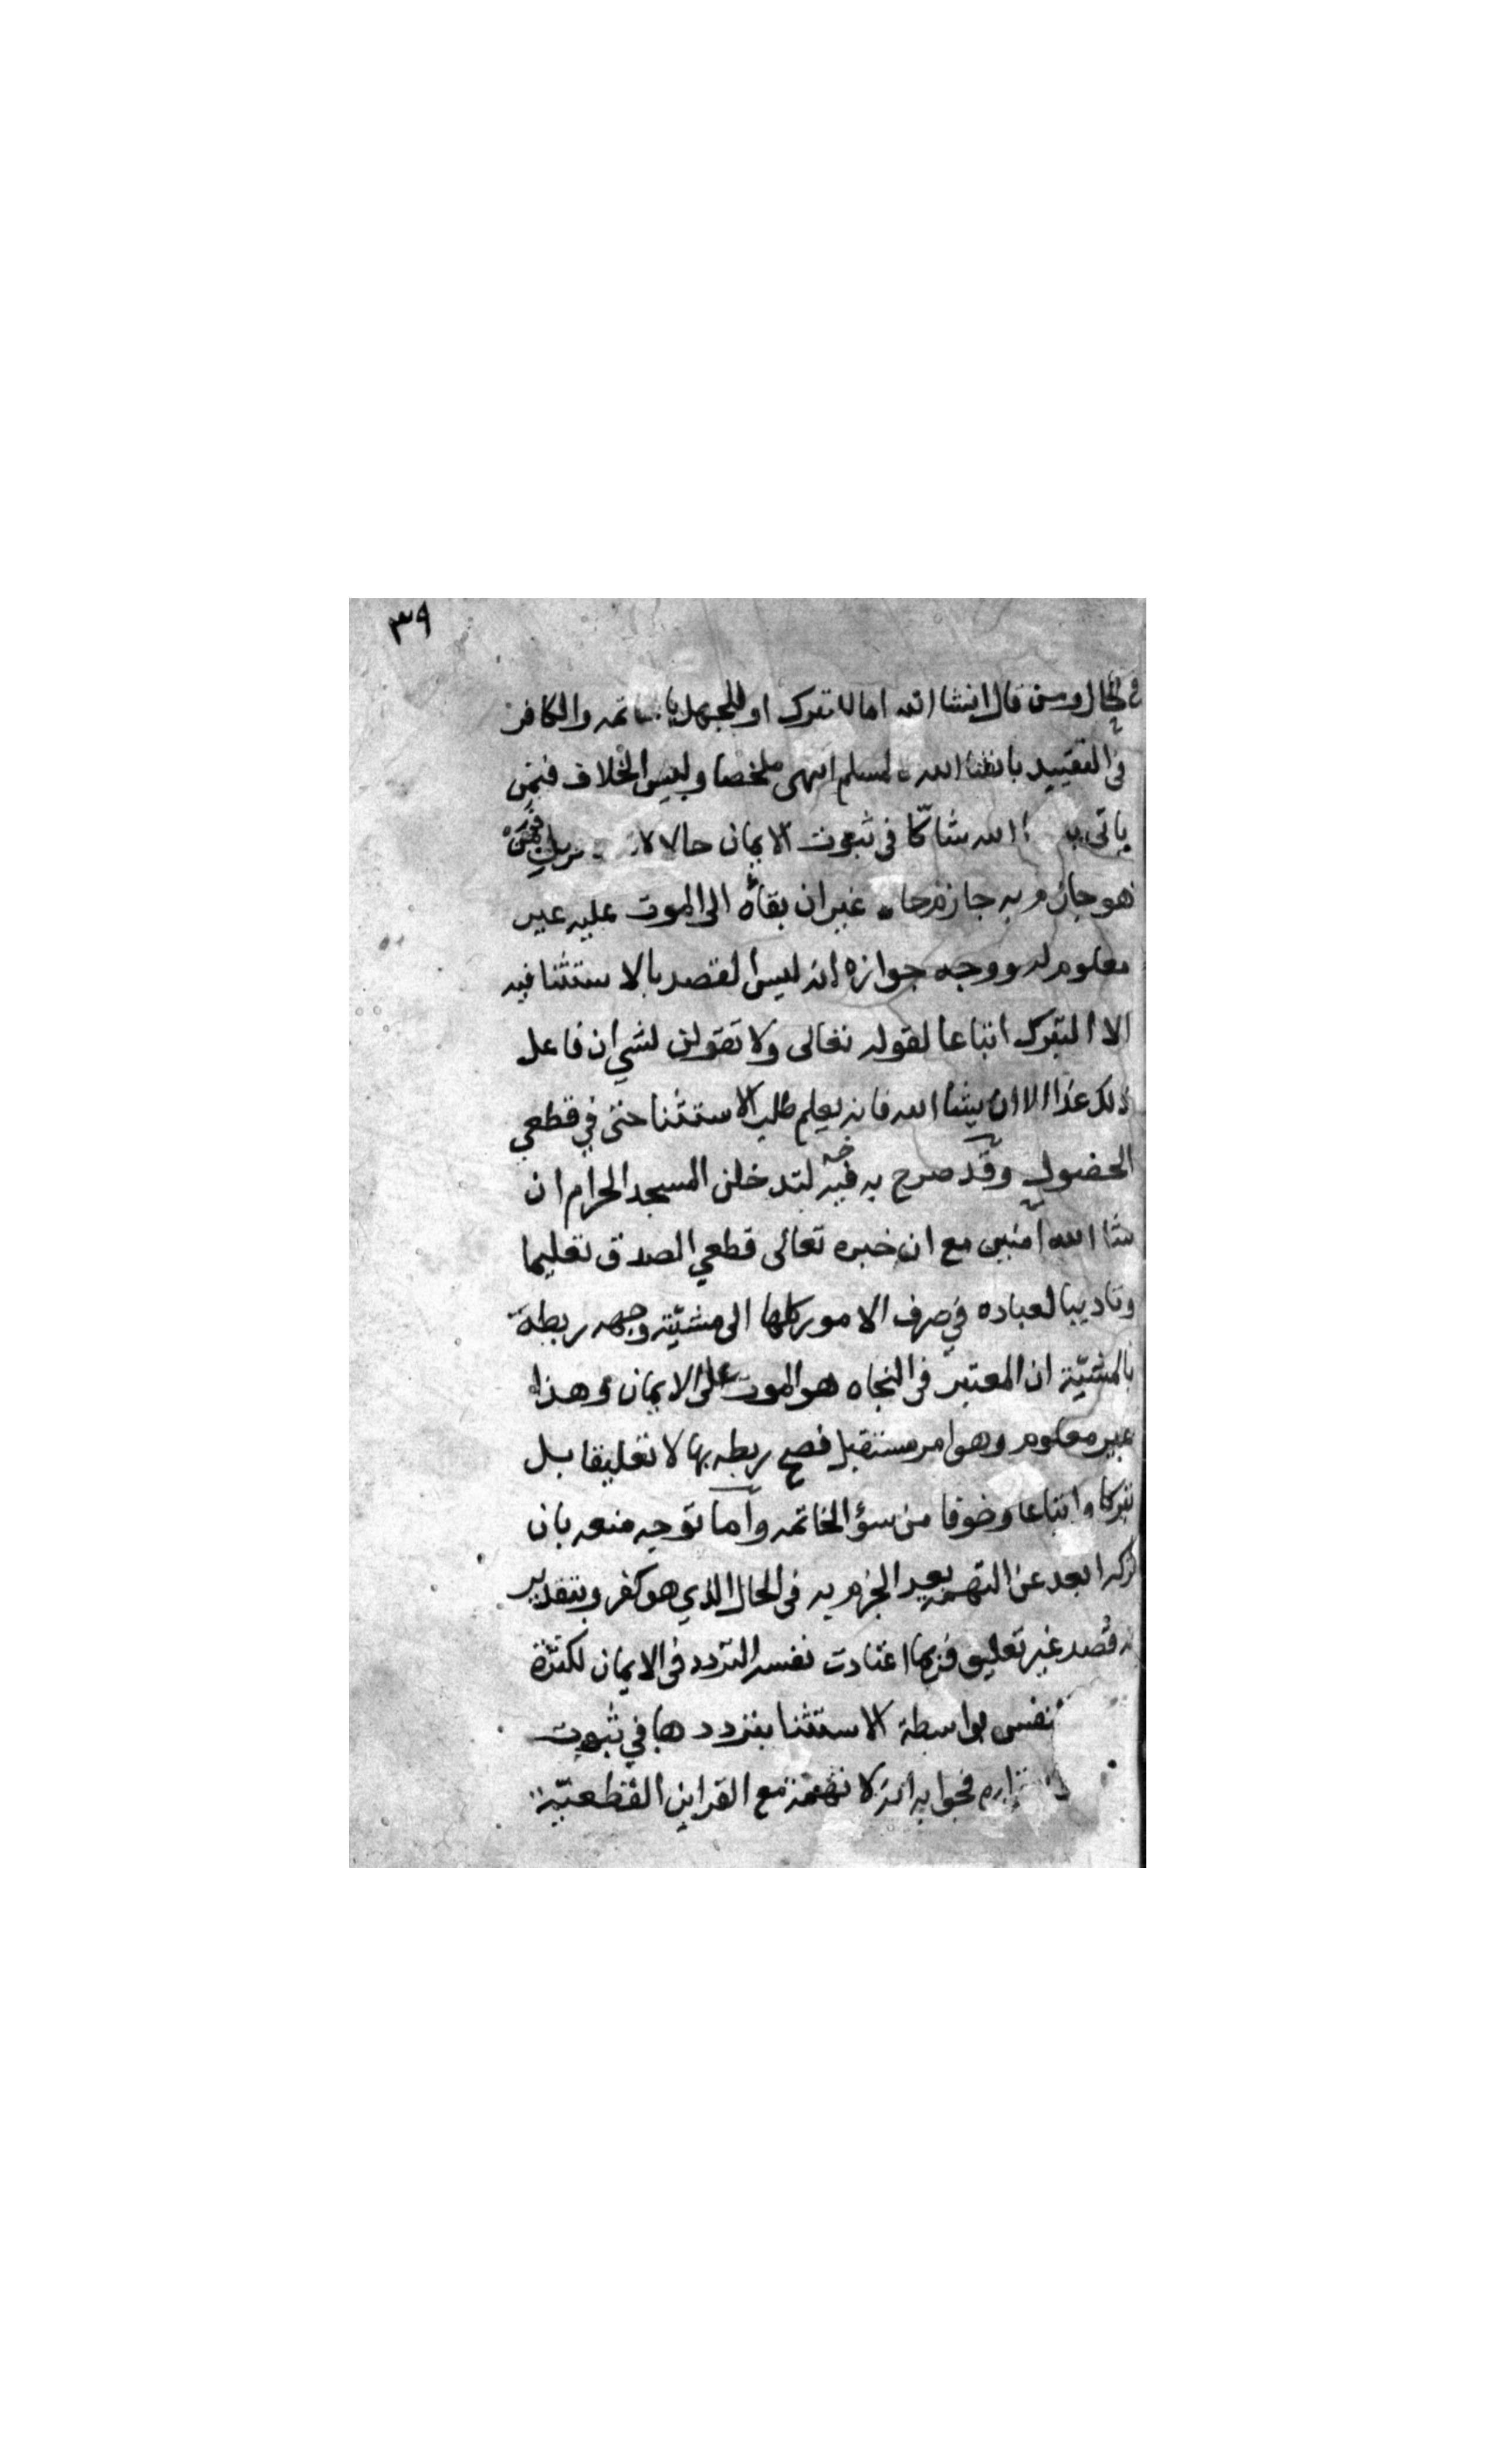 ٣٩
في الحال ومن قال انشا الله اما للتبرك او للجهل بالخاتمه والكافر
في التقييد بانشا الله كالمسلم انتهى ملخصا وليس الخلاف فيمن
ياتي به الله شاكّا في ثبوت الايمان حالا لانه بل فيمن
هو جازم به جازم حالا غير ان بقاه الى الموت عليه غير
معلوم له ووجه جوازه انه ليس القصد بالاستثنا فيه
الا التبرك اتباعا لقوله تعالى ولا تقولن لشي ان فاعل
ذلك غدا الا ان يشا الله فانه يعلم طلب الاستثنا حتى في قطعي
الحصول وقد صرح به في خبر لتدخلن المسجد الحرام ان
شا الله امنين مع ان خبره تعالى قطعي الصدق تعليما
وتاديبا لعباده في صرف الامور كلها الى مشيّته وجهه ربطة
بالمشيّة ان المعتبر في النجاه هو الموت على الايمان وهذا
غير معلوم وهو امر مستقبل فصح ربطه بها لا تعليقا بل
تبركا واتباعا وخوفا من سؤ الخاتمه وأما توجيه منعه بان
تركه ابعد عن التهمة بعيد الجزم به في الحال الذي هو كفر وبتقدير
انه قصد غير تعليق فربما اعتادت نفسه التردد في الايمان لكثرة
نفس بواسطة الاستثنا بترددها في ثبوت
فجوابه انه لا تهمة مع القراين القطعيّة